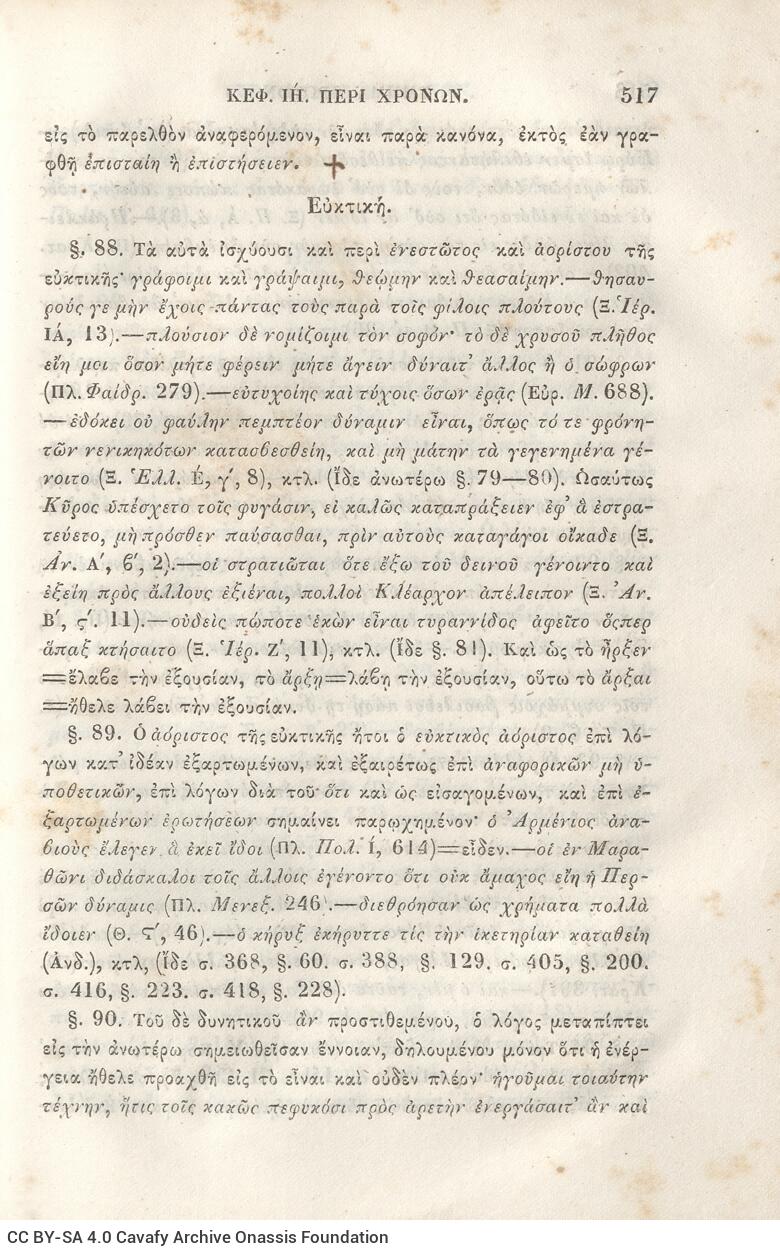 ΚΕΦ. ΙΉ. ΠΕΡΙ ΧΡΟΝΩΝ. 517
εἰς τὸ παρελθὸν ἀναφερόμενον, εἶναι παρὰ κανόνα, ἐκτὸς ἐὰν γρα-
φθῆ ἐπισταίη ἢ ἐπιστήσειεν. +
Εὐκτική.
§. 88. Τὰ αὐτὰ ἰσχύουσι καὶ περὶ ἐνεστῶτος καὶ ἀορίστου τῆς
εὐκτικῆς· γράφοιμι καὶ γράψαιμι, θεῴμην καὶ θεασαίμην.—θησαυ-
ρούς γε μὴν ἔχοις πάντας τοὺς παρὰ τοῖς φίλοις πλούτους (Ξ. Ἱέρ.
ΙΆ, 13).—πλούσιον δὲ νομίζοιμι τὸν σοφόν· τὸ δὲ χρυσοῦ πλῆθος
εἴη μοι ὅσον μήτε φέρειν μήτε ἄγειν δύναιτ' ἄλλος ἢ ὁ σώφρων
(Πλ. Φαίδρ. 279).—εὐτυχοίης καὶ τύχοις ὅσων ἐρᾷς (Εὐρ. Μ. 688).
—ἐδόκει οὐ φαύλην πεμπτέον δύναμιν εἶναι, ὅπως τό τε φρόνη-
τῶν νενικηκότων κατασβεσθείη, καὶ μὴ μάτην τὰ γεγενημένα γέ-
νοιτο (Ξ. Ἑλλ. Έ, γ', 8), κτλ. (Ἴδε ἀνωτέρω §. 79—80). Ὡσαύτως
Κῦρος ὑπέσχετο τοῖς φυγάσιν, εἰ καλῶς καταπράξειεν ἐφ' ἃ ἐστρα-
τεύετο, μὴ πρόσθεν παύσασθαι, πρὶν αὐτοὺς καταγάγοι οἴκαδε (Ξ.
Ἀν. Α', β', 2).—οἱ στρατιῶται ὅτε ἔξω τοῦ δεινοῦ γένοιντο καὶ
ἐξείη πρὸς ἄλλους ἐξιέναι, πολλοὶ Κλέαρχον ἀπέλειπον (Ξ. Ἀν.
Β', ς'. 11).—οὐδεὶς πώποτε ἑκὼν εἶναι τυραννίδος ἀφεῖτο ὅςπερ
ἅπαξ κτήσαιτο (Ξ. Ἱέρ. Ζ', 11), κτλ. (Ἴδε §. 81). Καὶ ὡς τὸ ἦρξεν
=ἔλαβε τὴν ἐξουσίαν, τὸ ἄρξῃ=λάβῃ τὴν ἐξουσίαν, οὕτω τὸ ἄρξαι
=ἤθελε λάβει τὴν ἐξουσίαν.
§. 89. Ὁ ἀόριστος τῆς εὐκτικῆς ἤτοι ὁ εὐκτικὸς ἀόριστος ἐπὶ λό-
γων κατ' ἰδέαν ἐξαρτωμένων, καὶ ἐξαιρέτως ἐπὶ ἀναφορικῶν μὴ ὑ-
ποθετικῶν, ἐπὶ λόγων διὰ τοῦ ὅτι καὶ ὡς εἰσαγομένων, καὶ ἐπὶ ἐ-
ξαρτωμένων ἐρωτήσεων σημαίνει παρῳχημένον· ὁ Ἀρμένιος ἀνα-
βιοὺς ἔλεγεν ἃ ἐκεῖ ἴδοι (Πλ. Πολ. Ί, 614)=εἶδεν.—οἱ ἐν Μαρα-
θῶνι διδάσκαλοι τοῖς ἄλλοις ἐγένοντο ὅτι οὐκ ἄμαχος εἴη ἡ Περ-
σῶν δύναμις (Πλ. Μενεξ. 246).—διεθρόησαν ὡς χρήματα πολλὰ
ἴδοιεν (Θ. Ϛ', 46).—ὁ κήρυξ ἐκήρυττε τίς τὴν ἱκετηρίαν καταθείη
(Ἀνδ.), κτλ, (Ἴδε σ. 368, §. 60. σ. 388, §. 129. σ. 405, §. 200.
σ. 416, §. 223. σ. 418, §. 228).
§. 90. Τοῦ δὲ δυνητικοῦ ἂν προστιθεμένου, ὁ λόγος μεταπίπτει
εἰς τὴν ἀνωτέρω σημειωθεῖσαν ἔννοιαν, δηλουμένου μόνον ὅτι ἡ ἐνέρ-
γεια ἤθελε προαχθῆ εἰς τὸ εἶναι καὶ οὐδὲν πλέον· ἡγοῦμαι τοιαύτην
τέχνην, ἥτις τοῖς κακῶς πεφυκόσι πρὸς ἀρετὴν ἐνεργάσαιτ' ἂν καὶ
CC BY-SA 4.0 Cavafy Archive Onassis Foundation